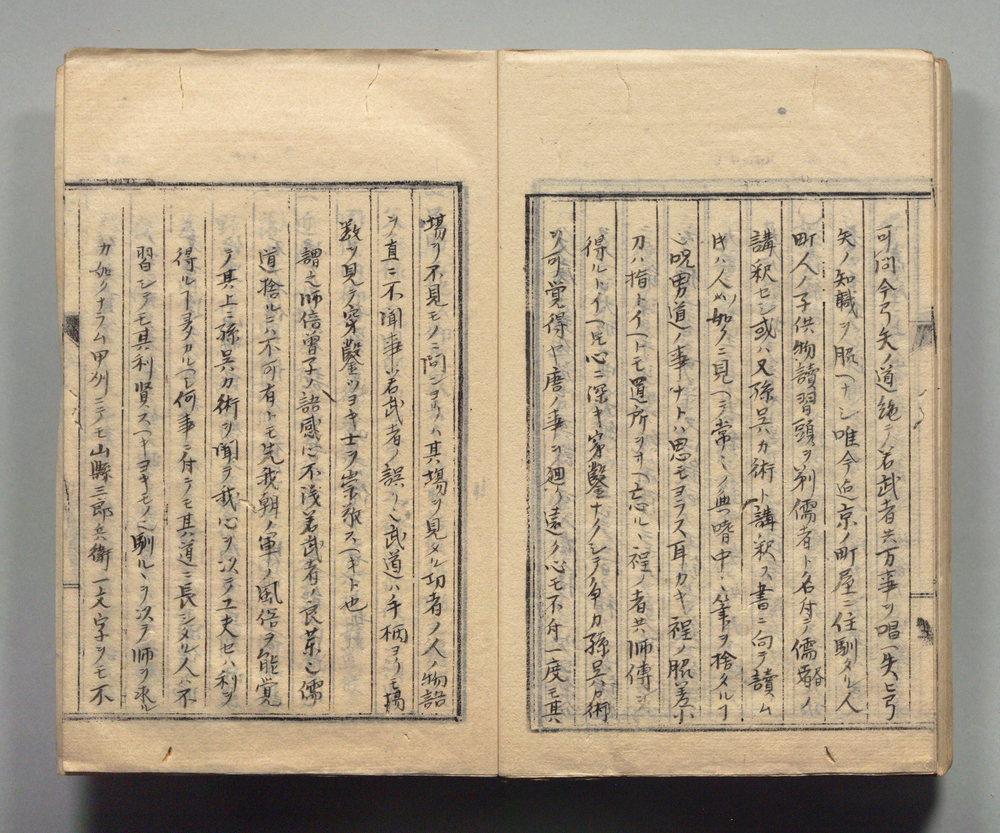 可問今弓矢ノ道絶テ若武者共万事ヲ唱失ヒ弓
矢ノ知職ヲ服ヘナシ唯今迄京ノ町屋ニ住馴タル人
町人ノ子供物讀習頭ヲ剃儒者ト名付テ儒
講釈セシ或ハ又孫呉カ術ト講釈ス書ニ向テ讀ム
時ハ人カ如クニ見ヘテ常ニノ中ハ筆ヲ捨タル
ニ呪男道ノ事ナトハ思モヨラス耳カキ程ノ服差小
刀ハ指トイヘトモ置所ヲサヘ忘ルヽ程ノ者共師傳シ
得ルトイヘ心ニ深キ穿鑿ナクシテ争カ孫呉カ術
ヲ可覚得ヤ唐ノ事ハ廻リ遠ク心モ不付一度モ其
場ヲ不見モノニ問ンヨリハ其場ヲ見タル功者ノ人ノ物語
ヲ直ニ不聞事若武者ノ誤リ也武道ハ手柄ヨリモ場
数ヲ見テ穿鑿ツヨキ士ヲ崇敬スヘキト也
謂之師信曾子ノ語感ニ不浅若武者ノ良薬也儒
道捨ルニハ不可有トモ先我朝ノ軍ノ風俗ヲ能覚
テ其上ニ孫呉カ術ヲ聞テ我心ヲ以テ工夫セハ利ヲ
得ルコト多カルヘシ何事ニ付テモ其道ニ長シタル人ハ不
習シテモ其利賢スヘキヨキモノニ馴ルヽヲ以テ師ヲ求ル
カ如クナラム甲州ニテモ山縣三郎兵衛一文字ヲモ不